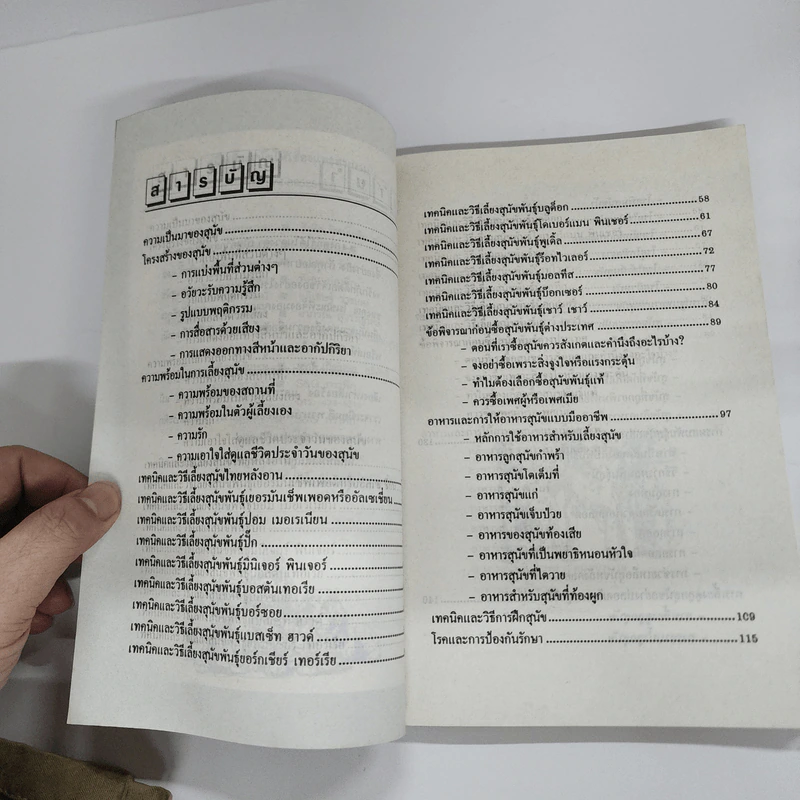 สารบัญ
ความเป็นมาของสุนัข
โครงสร้างของสุนัข
- การแบ่งพื้นที่ส่วนต่างๆ
- อวัยวะรับความรู้สึก
- รูปแบบพฤติกรรม
- การสื่อสารด้วยเสียง
- การแสดงออกทางสีหน้าและอากัปกิริยา
ความพร้อมในการเลี้ยงสุนัข
- ความพร้อมของสถานที่
- ความพร้อมในตัวผู้เลี้ยงเอง
- ความรัก
- ความเอาใจใส่ดูแลชีวิตประจำวันของสุนัข
เทคนิคและวิธีเลี้ยงสุนัขไทยหลังอาน
เทคนิคและวิธีเลี้ยงสุนัขพันธุ์เยอรมันเช็พเพอดหรืออัลเซเชี่ยน
เทคนิคและวิธีเลี้ยงสุนัขพันธุ์ปอม เมอเรเนียน
เทคนิคและวิธีเลี้ยงสุนัขพันธุ์ปั๊ก
เทคนิคและวิธีเลี้ยงสุนัขพันธุ์มินิเจอร์ พินเจอร์
เทคนิคและวิธีเลี้ยงสุนัขพันธุ์บอสตันเทอเรีย
เทคนิคและวิธีเลี้ยงสุนัขพันธุ์บอร์ซอย
เทคนิคและวิธีเลี้ยงสุนัขพันธุ์แบสเซ็ท ฮาวด์
เทคนิคและวิธีเลี้ยงสุนัขพันธุ์ยอร์กเชียร์ เทอร์เรีย
เทคนิคและวิธีเลี้ยงสุนัขพันธุ์บลูด็อก 58
เทคนิคและวิธีเลี้ยงสุนัขพันธุ์โดเบอร์แมน พินเชอร์ 61
เทคนิคและวิธีเลี้ยงสุนัขพันธุ์พูเดิ้ล 67
เทคนิคและวิธีเลี้ยงสุนัขพันธุ์ร็อทไวเลอร์ 72
เทคนิคและวิธีเลี้ยงสุนัขพันธุ์มอลทีส 77
เทคนิคและวิธีเลี้ยงสุนัขพันธุ์บ๊อกเซอร์ 80
เทคนิคและวิธีเลี้ยงสุนัขพันธุ์เชาว์ เชาว์ 84
ข้อพิจารณาก่อนซื้อสุนัขพันธุ์ต่างประเทศ 89
- ตอนที่เราซื้อสุนัขควรสังเกตและคำนึงถึงอะไรบ้าง?
- จงอย่าซื้อเพราะสิ่งจูงใจหรือแรงกระตุ้น
- ทำไมต้องเลือกซื้อสุนัขพันธุ์แท้
- ควรซื้อเพศผู้หรือเพศเมีย
อาหารและการให้อาหารสุนัขแบบมืออาชีพ 97
- หลักการใช้อาหารสำหรับเลี้ยงสุนัข
- อาหารลูกสุนัขกำพร้า
- อาหารสุนัขโตเต็มที่
- อาหารสุนัขแก่
- อาหารสุนัขเจ็บป่วย
- อาหารของสุนัขท้องเสีย
- อาหารสุนัขที่เป็นพยาธิหนอนหัวใจ
- อาหารสุนัขที่ไตวาย
- อาหารสำหรับสุนัขที่ท้องผูก
เทคนิคและวิธีการฝึกสุนัข 109
โรคและการป้องกันรักษา 115